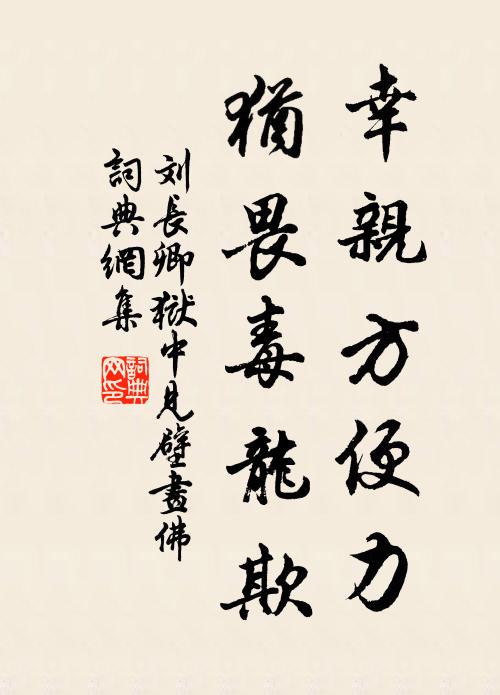 幸親方便力
猶畏毒龍欺
刘長卿獄中見壁畫佛
詞典網集
詞典网印